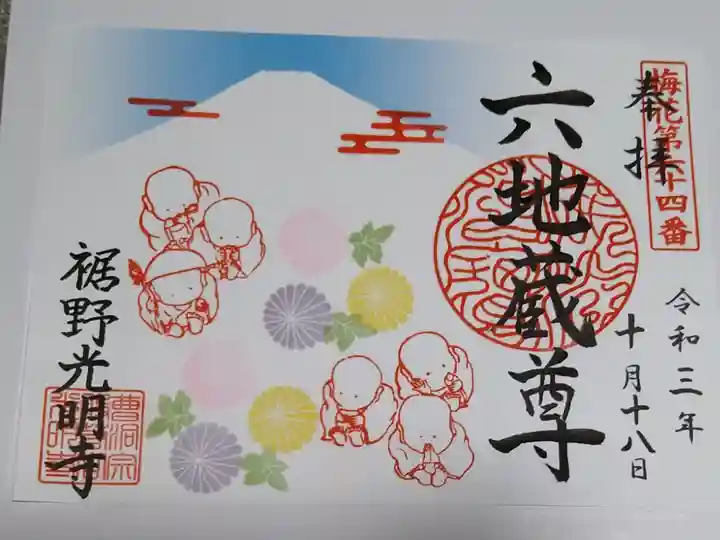 奉拝
梅花第六十四番
令和三年
十月十八日
六地蔵尊
裾野光明寺
曹洞宗
光明寺